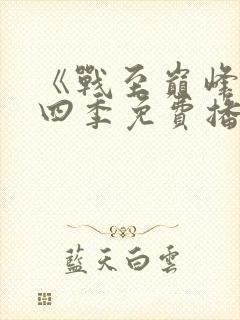 《戰至巔峰
四季免費播
藍天白雲